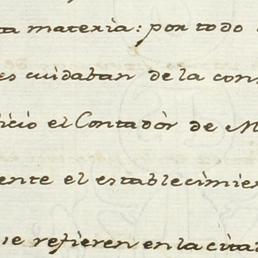 ta materia: por todo
es cuidaban de la con
icio el Contadòr de M
ente el establecimien
ue refieren en la cita